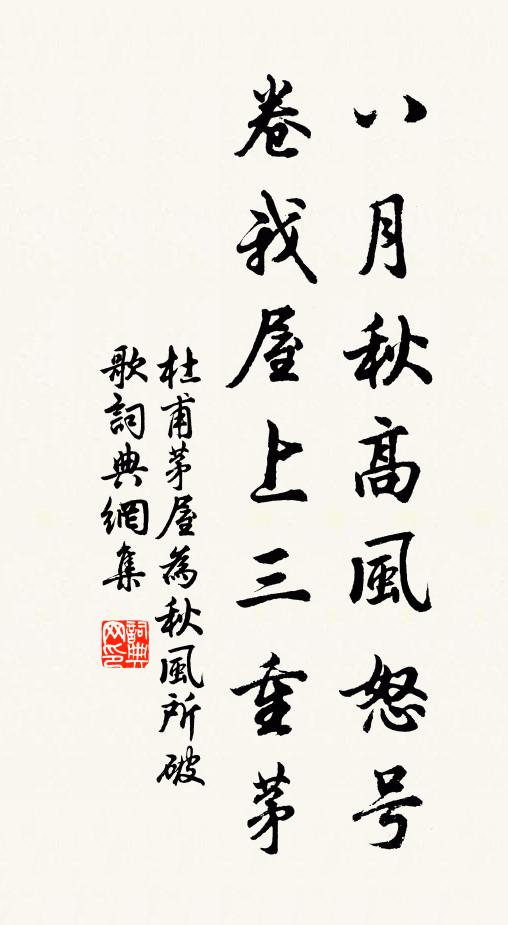 八月秋高風怒号
卷我屋上三重茅
杜甫茅屋為秋風所破
歌詞典網集
詞典网印